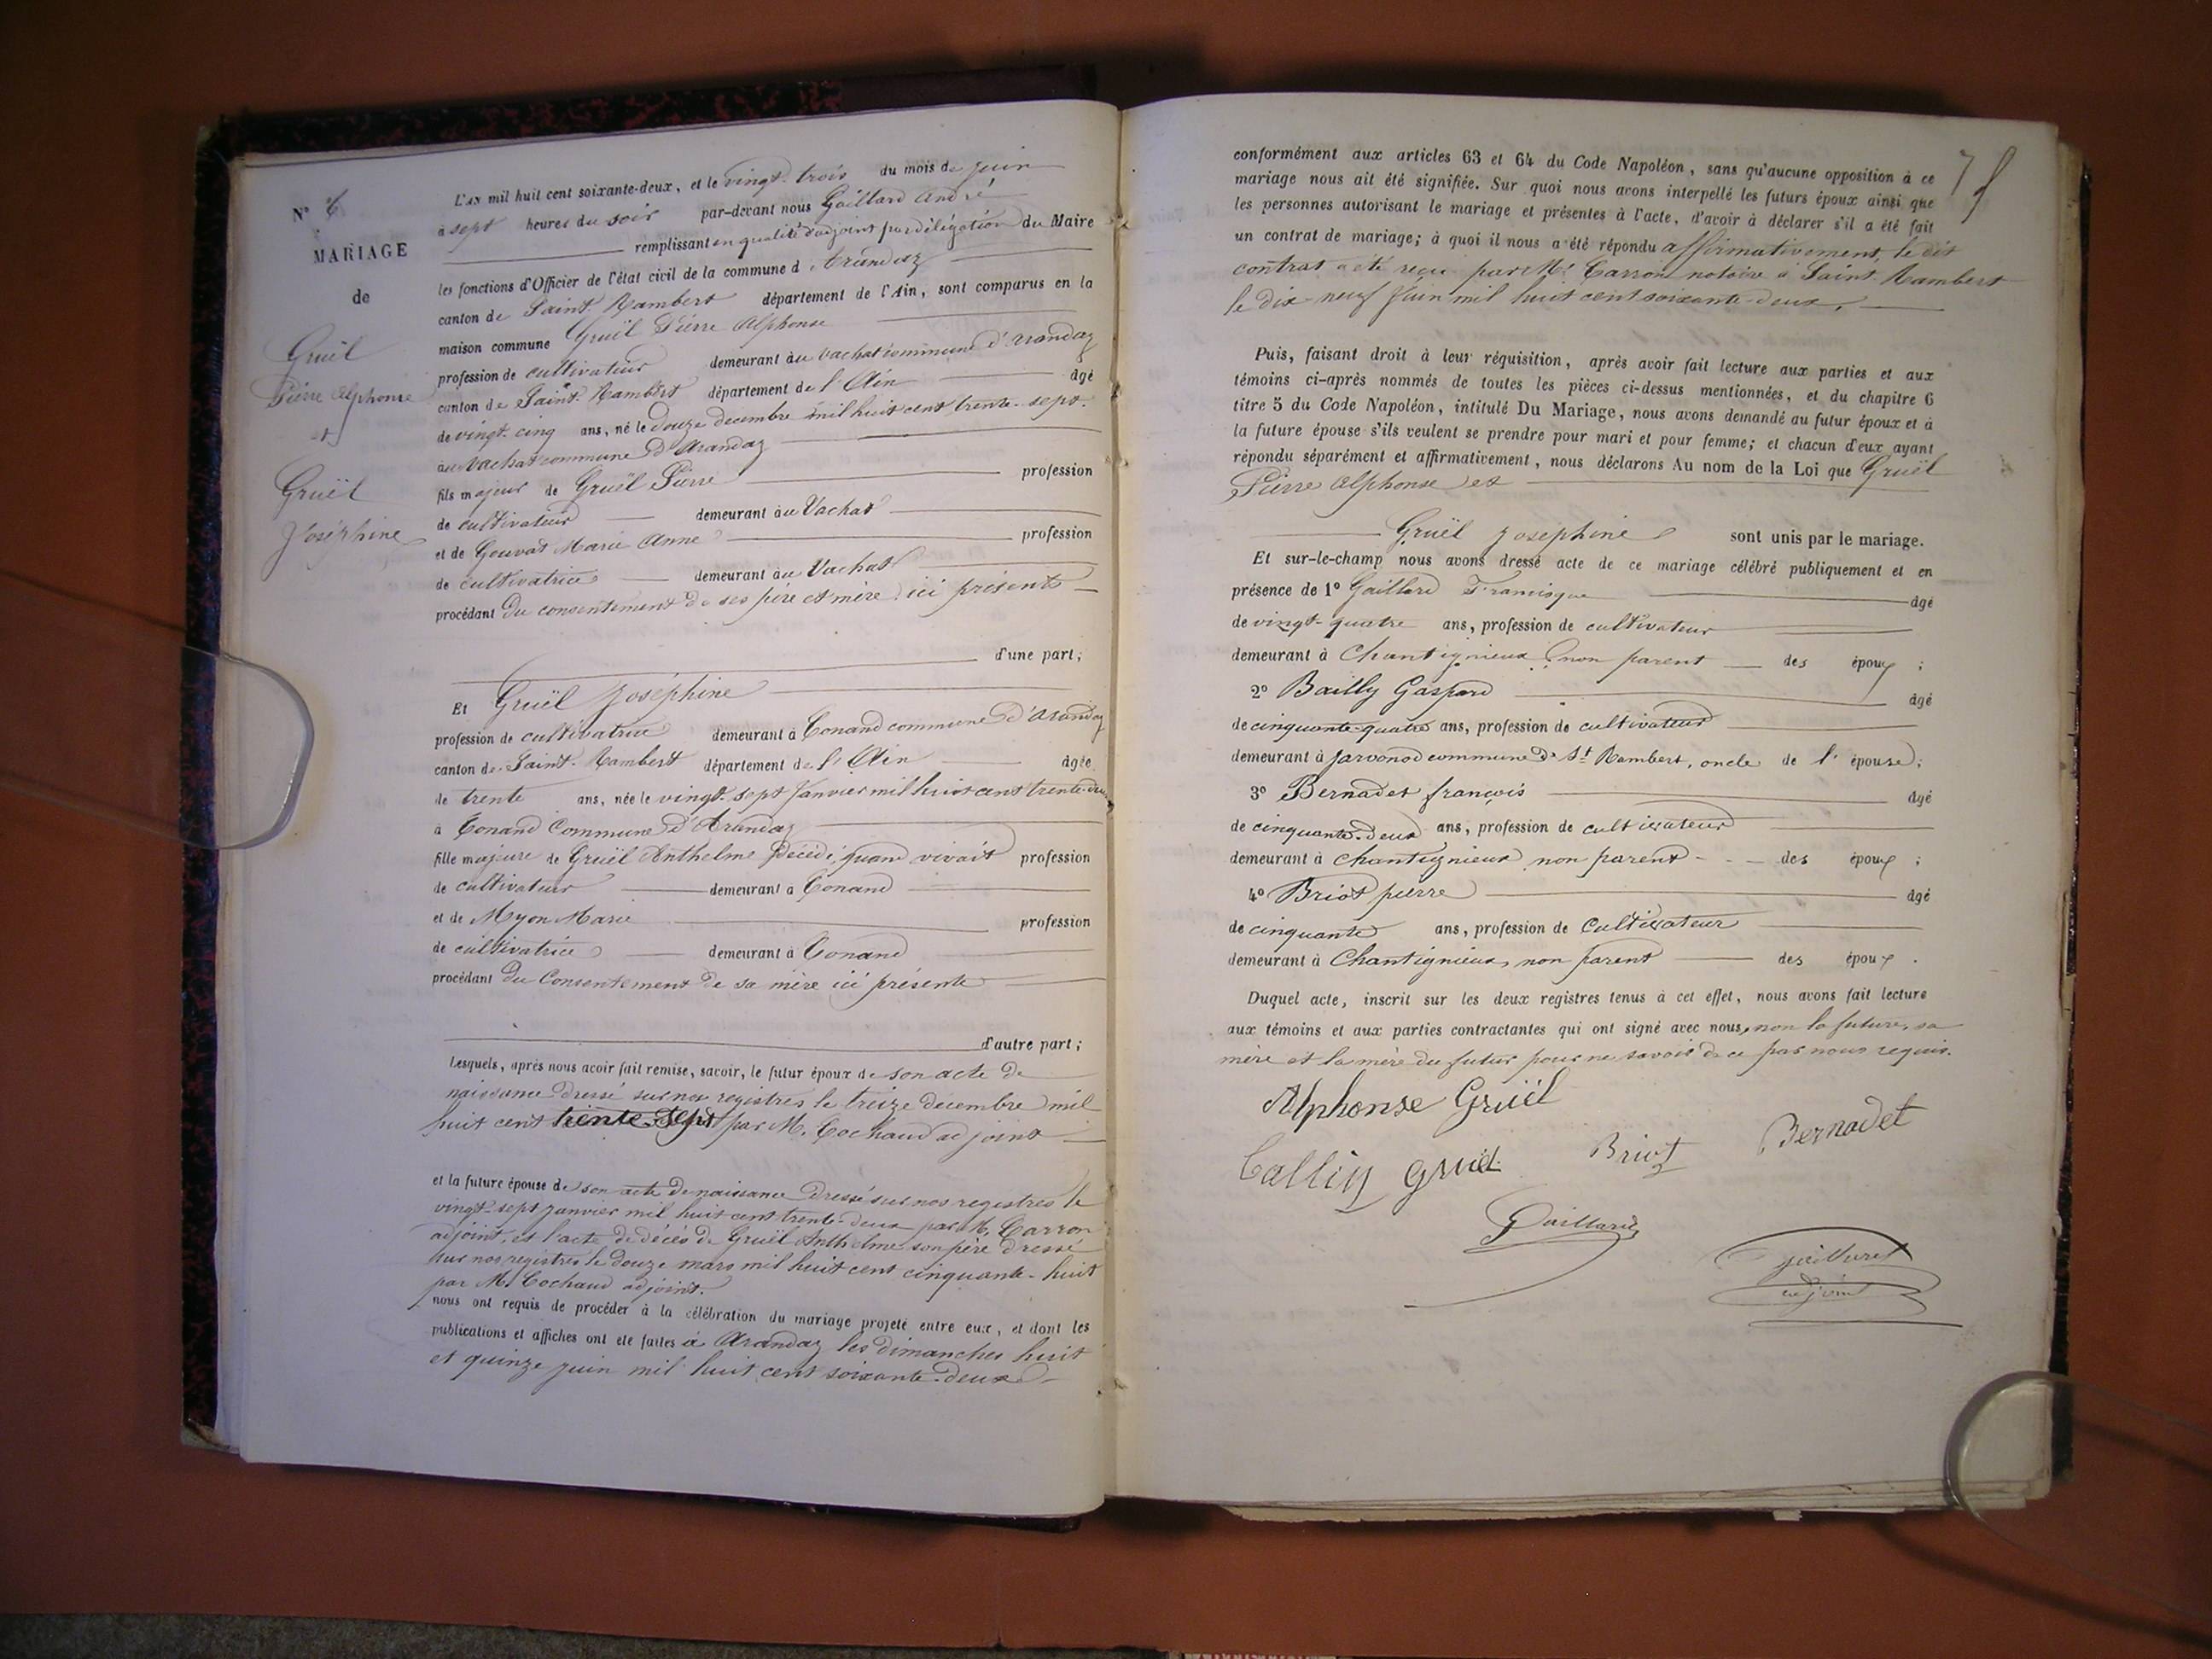 N° 6
MARIAGE
de
Gruël
Pierre Alphonse
et
Gruël
Joséphine
L'AN mil huit cent soixante-deux, et le vingt-trois du mois de juin
à sept heures du soir par-devant nous Gaillard André
remplissant en qualité d'adjoint par délégation du Maire
les fonctions d'Officier de l'état civil de la commune d'Arandaz
canton de Saint-Rambert département de l'Ain, sont comparus en la
maison commune Gruël Pierre Alphonse
profession de cultivateur demeurant àu Vachat commune d'Arandaz
canton de Saint-Rambert département de l'Ain âgé
de vingt-cinq ans, né le douze decembre mil huit cent trente-sept.
àu Vachat commune d'Arandaz
fils majeur de Gruël Pierre profession
de cultivateur demeurant àu Vachat
et de Gouvat Marie Anne profession
de cultivatrice demeurant àu Vachat
procédant du consentement de ses père et mère ici présents
d'une part;
Et Gruël Joséphine
profession de cultivatrice demeurant à Conand commune d'Arandaz
canton de Saint-Rambert département de l'Ain âgée
de trente ans, née le vingt-sept janvier mil huit cent trente-deux
à Conand Commune d'Arandaz
fille majeure de Gruël Anthelme décédé, quand vivait profession
de cultivateur demeurant à Conand
et de Myon Marie profession
de cultivatrice demeurant à Conand
procédant du Consentement de sa mère ici présente
d'autre part;
Lesquels, après nous avoir fait remise, savoir, le futur époux de son acte de
naissance dressé sur nos registres le treize décembre mil
huit cent trente-sept par M. Cochaud adjoint
et la future épouse de son acte de naissance dressé sur nos registres le
vingt-sept janvier mil huit cent trente-deux par M. Carron
adjoint, et l'acte de décès de Gruël Anthelme son père dressé
sur nos registres le douze mars mil huit cent cinquante-huit
par M. Cochaud adjoint.
nous ont requis de procéder à la célébration du mariage projeté entre eux, et dont les
publications et affiches ont été faites à Arandaz les dimanches huit
et quinze juin mil huit cent soixante-deux
conformément aux articles 63 et 64 du Code Napoléon, sans qu'aucune opposition à ce
mariage nous ait été signifiée. Sur quoi nous avons interpellé les futurs époux ainsi que
les personnes autorisant le mariage et présentes à l'acte, d'avoir à déclarer s'il a été fait
un contrat de mariage; à quoi il nous a été répondu affirmativement, le dit
contrat a été reçu par Me Carron notaire à Saint-Rambert
le dix-neuf Juin mil huit cent soixante-deux.
Puis, faisant droit à leur réquisition, après avoir fait lecture aux parties et aux
témoins ci-après nommés de toutes les pièces ci-dessus mentionnées, et du chapitre 6
titre 5 du Code Napoléon, intitulé Du Mariage, nous avons demandé au futur époux et à
la future épouse s'ils veulent se prendre pour mari et pour femme; et chacun d'eux ayant
répondu séparément et affirmativement, nous déclarons Au nom de la Loi que Gruël
Pierre Alphonse et
Gruël Josephine sont unis par le mariage.
Et sur-le-champ nous avons dressé acte de ce mariage célébré publiquement et en
présence de 1° Gaillard Francisque âgé
de vingt-quatre ans, profession de cultivateur
demeurant à Chantignieux, non parent des époux;
2° Bailly Gaspard âgé
de cinquante-quatre ans, profession de cultivateur
demeurant à Javornod commune de St Rambert, oncle de l'épouse;
3° Bernadet françois âgé
de cinquante-deux ans, profession de cultivateur
demeurant à Chantignieux non parent des époux;
4° Briot pierre âgé
de cinquante ans, profession de Cultivateur
demeurant à Chantignieux, non parent des époux.
Duquel acte, inscrit sur les deux registres tenus à cet effet, nous avons fait lecture
aux témoins et aux parties contractantes qui ont signé avec nous, non la future, sa
mère et la mère du futur pour ne savoir de ce par nous requis.
Alphonse Gruël
Gruël Briot Bernadet
Gaillard
gaillard
adjoint